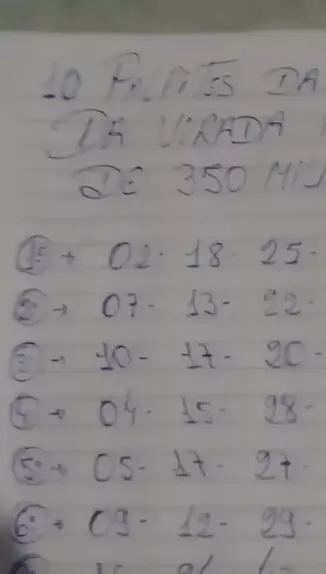 10 PALPITES DA
DA VIRADA
DE 350 MIL
1º → 02- 18- 25-
2º → 07- 13- 22-
3º → 10- 17- 20-
4º → 04- 15- 28-
5º → 05- 17- 27-
6º → 09- 12- 29-